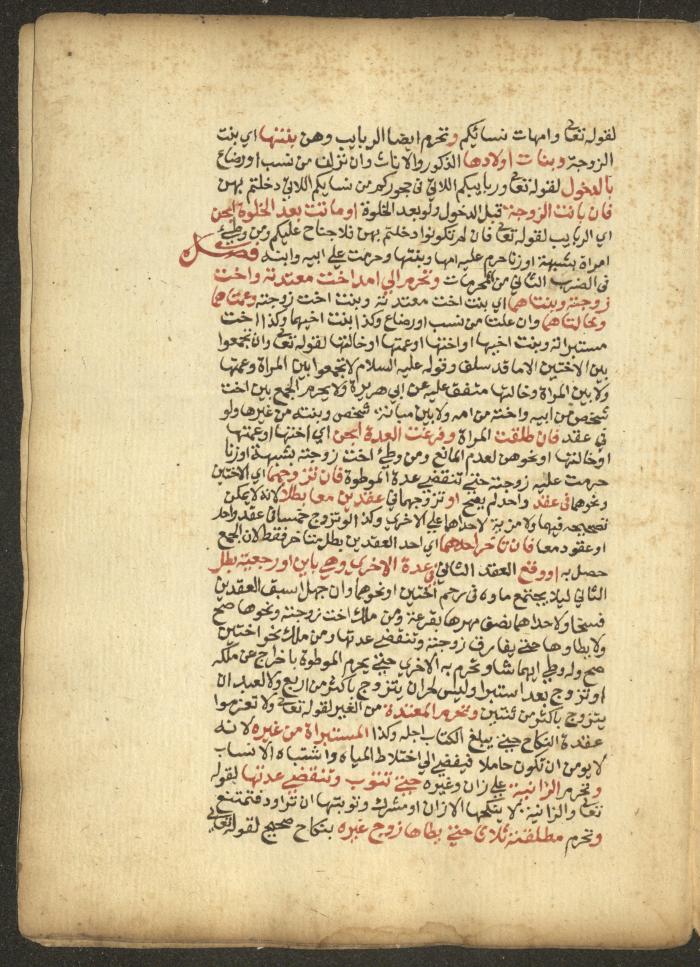 لقوله تعالى وامهات نسائكم وتحرم ايضا الربايب وهن بنتها اي بنت
الزوجة وبنات اولادها الذكور والاناث وان نزلن من نسب او رضاع
بالدخول لقوله تعالى وربايبكم اللاتي في حجوركم من نسايكم اللاتي دخلتم بهن
فان بانت الزوجة قبل الدخول ولو بعد الخلوة او ماتت بعد الخلوة ابحن
اي الربايب لقوله تعالى فان لم تكونوا دخلتم بهن فلا جناح عليكم ومن وطئ
امراة بشبهة او زنا حرم عليه امها وبنتها وحرمت على ابيه وابنه فصل
في الضرب الثاني من المحرمات وتحرم الى امد اخت معتدته واخت
زوجته وبنتاهما اي بنت اخت معتدته وبنت اخت زوجته وعمتاهما
وخالتاهما وان علتا من نسب او رضاع وكذا بنت اخيهما وكذا اخت
مستبراته وبنت اخيها او اختها او عمتها او خالتها لقوله تعالى وان تجمعوا
بين الاختين الا ما قد سلف وقوله عليه السلام لا تجمعوا بين المراة وعمتها
ولا بين المراة وخالتها متفق عليه عن ابي هريرة ولا يحرم الجمع بين اخت
شخص من ابيه واخته من امه ولا بين مبانة شخص وبنته من غيرها ولو
في عقد فان طلقت المراة وفرغت العدة ابحن اي اختها او عمتها
او خالتها او نحوهن لعدم المانع ومن وطئ اخت زوجته بشبهة او زنا
حرمت عليه زوجته حتى تنقضي عدة الموطوة فان تزوجهما اي الاختين
ونحوهما في عقد واحد لم يصح او تزوجهما في عقدين معا بطلا لانه لا يمكن
تصحيحه فيهما ولا مزية لاحداهما على الاخرى وكذا لو تزوج خمسا في عقد واحد
او عقود معا فان تاخر احدهما اي احد العقدين بطل متاخر فقط لان الجمع
حصل به او وقع العقد الثاني في عدة الاخرى وهي باين او رجعية بطل
الثاني ليلا يجتمع ماوه في رحم اختين او نحوهما وان جهل اسبق العقدين
فسخا ولاحداهما نصف مهرها بقرعة ومن ملك اخت زوجته ونحوها صح
ولا يطاوها حتى يفارق زوجته وتنقضي عدتها ومن ملك نحو اختين
صح وله وطئ ايهما شا وتحرم به الاخرى حتى يحرم الموطوة باخراج عن ملكه
او تزوج بعد استبرا وليس لحر ان يتزوج باكثر من اربع ولا لعبد ان
يتزوج باكثر من ثنتين وتحرم المعتدة من الغير لقوله تعالى ولا تعزموا
عقدة النكاح حتى يبلغ الكتاب اجله وكذا المستبراة من غيره لانه
لا يومن ان تكون حاملا فيفضي الى اختلاط المياه واشتباه الانساب
وتحرم الزانية على زان وغيره حتى تتوب وتنقضي عدتها لقوله
تعالى والزانية لا ينكحها الا زان او مشرك وتوبتها ان تراود فتمتنع
وتحرم مطلقته ثلاثا حتى يطاها زوج غيره بنكاح صحيح لقوله تعالى